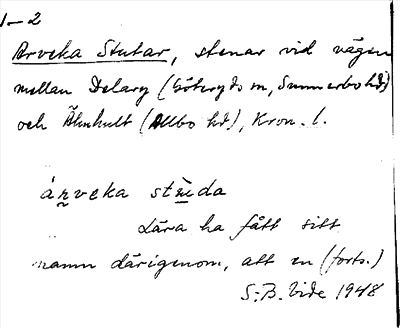 1–2
Arveka Stutar, stenar vid vägen
mellan Delary (Göteryds sn, Sunnerbo hd)
och Älmhult (Allbo hd), Kron. l.
Lära ha fått sitt
namn därigenom, att en (forts.)
S.-B. Vide 1948